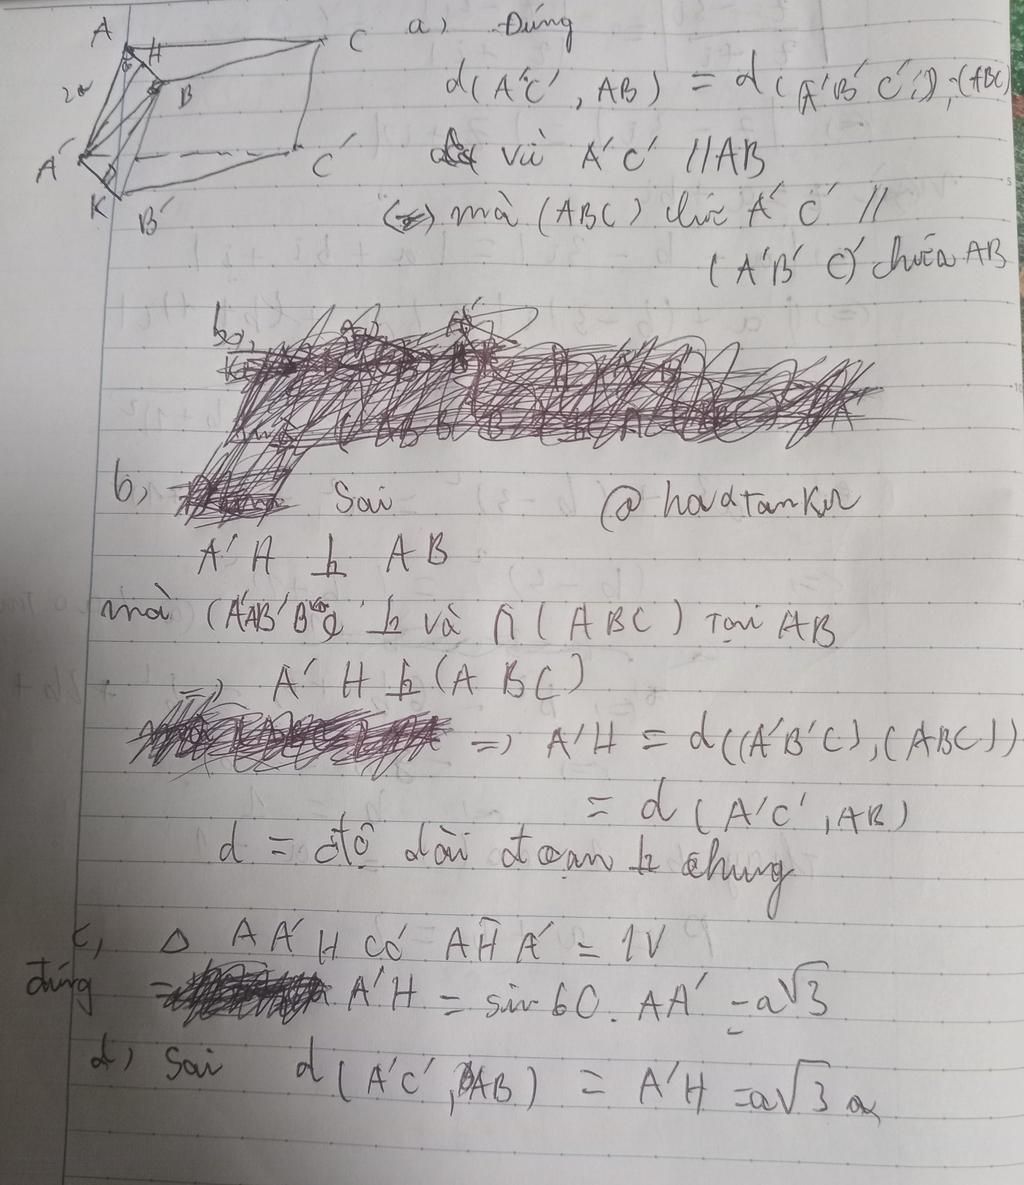 A
H
C
B
2a
A'
C'
K
B'
a, Đúng
d(A'C', AB) = d((A'B'C'), (ABC))
và A'C' // AB
mà (ABC) A'C' //
(A'B'C') chứa AB
b,
b, Sai @hoadtankur
A'A ⊥ AB
mà ⊥ và ∩ (ABC) tại AB
=> A'H ⊥ (ABC)
=> A'H = d((A'B'C), (ABC))
= d(A'C', AB)
d = độ dài đoạn ⊥ chung
c, Δ AA'H có AĤA' = 1V
đúng = A'H = sin 60. AA' = a√3
d, Sai d(A'C', AB) = A'H = a√3